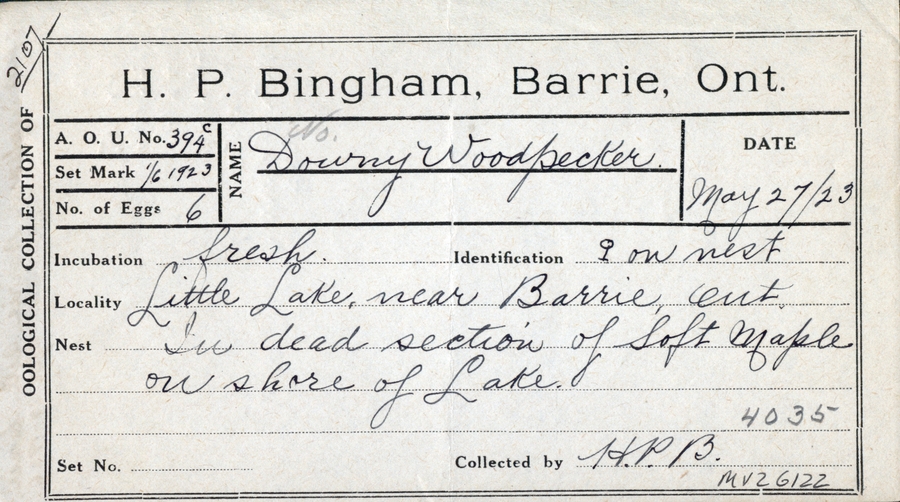 2107
OOLOGICAL COLLECTION OF
H. P. Bingham, Barrie, Ont.
A. O. U. No. 394c
Set Mark 1/6 1923
No. of Eggs 6
NAME
No.
Downy Woodpecker.
DATE
May 27/23
Incubation fresh. Identification ♀ on nest
Locality Little Lake, near Barrie, Ont.
Nest In dead section of Soft Maple
on shore of Lake.
4035
Set No. Collected by H.P.B.
MVZ 6122